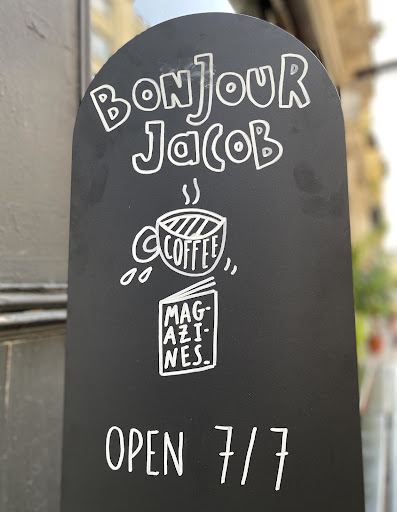 BONJOUR
JACOB
COFFEE
MAG-
AZI-
NES.
OPEN 7/7